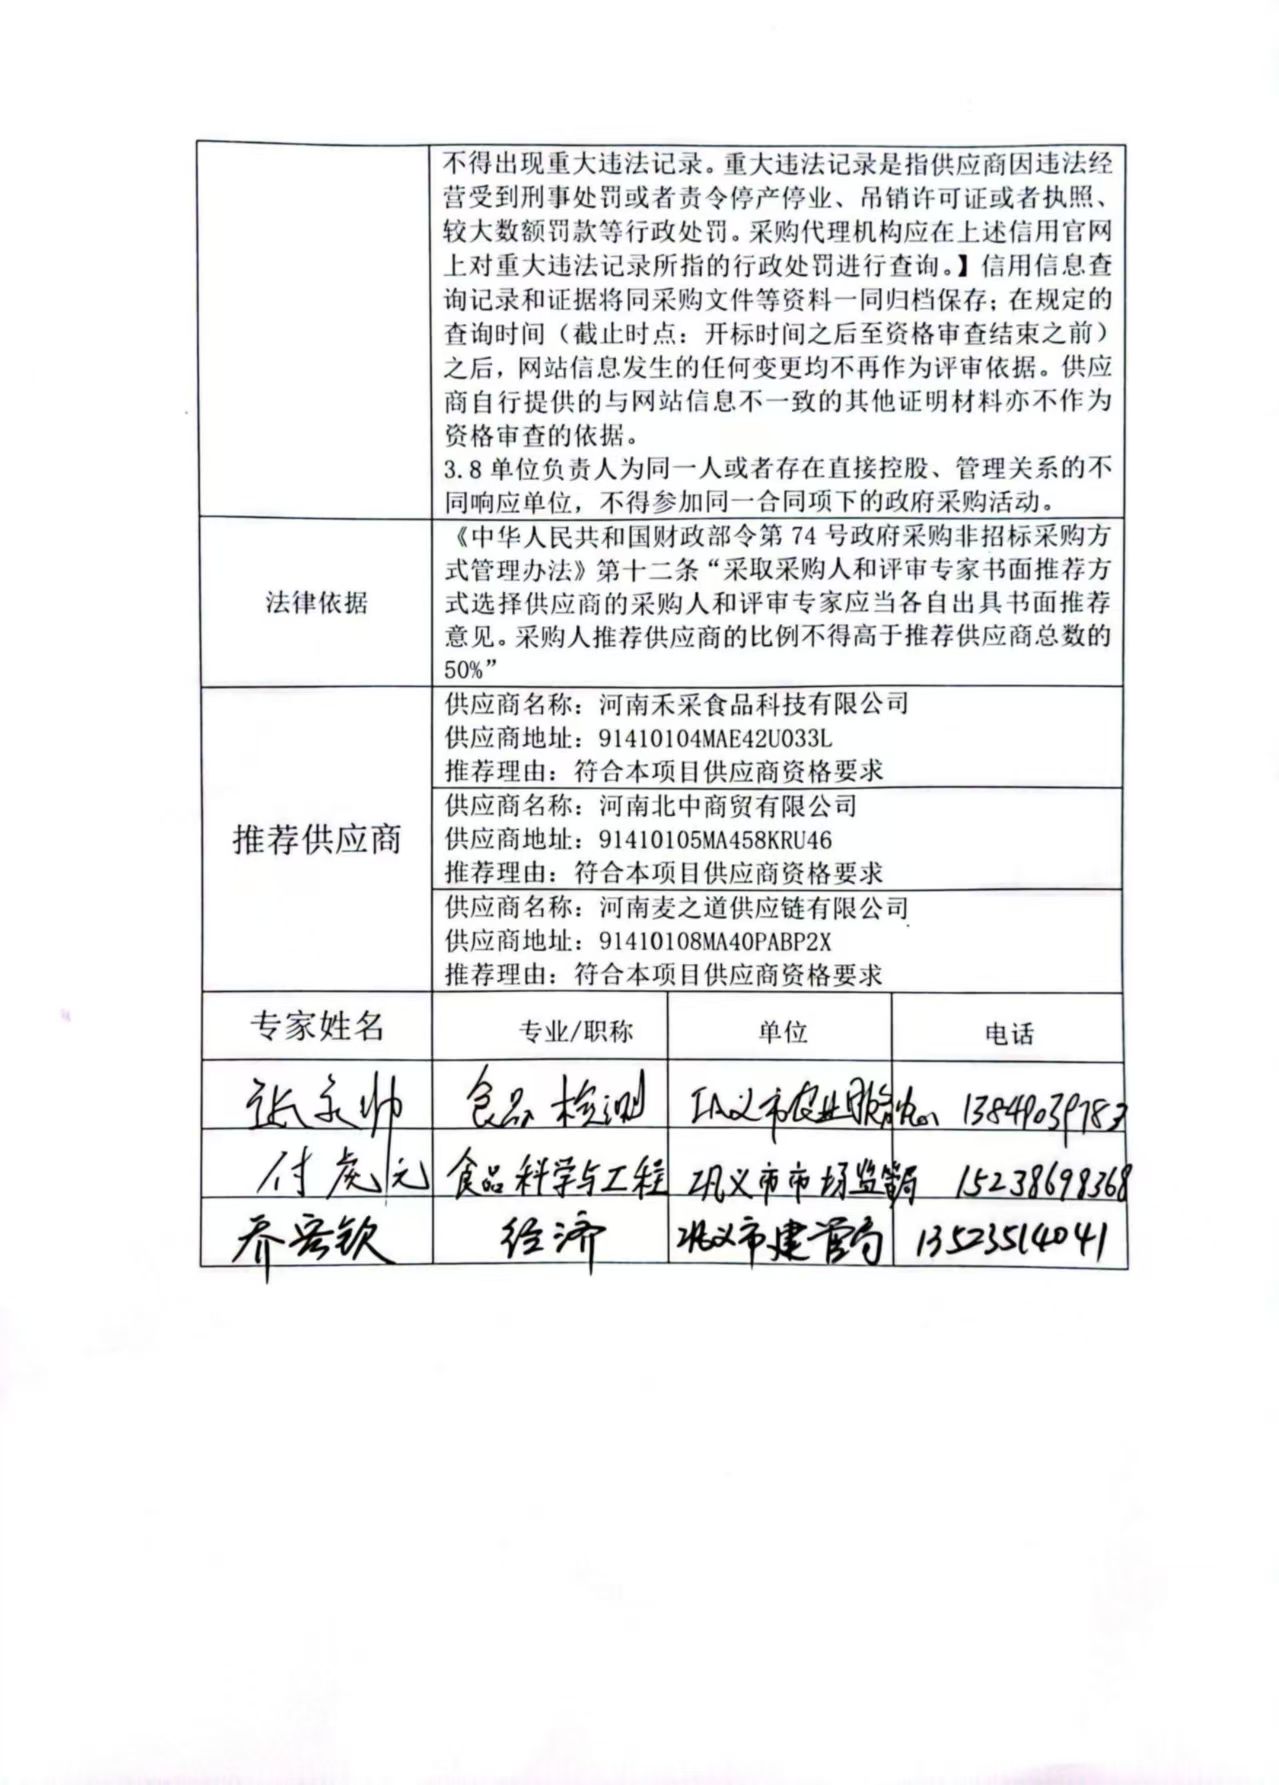 不得出现重大违法记录。重大违法记录是指供应商因违法经
营受到刑事处罚或者责令停产停业、吊销许可证或者执照、
较大数额罚款等行政处罚。采购代理机构应在上述信用官网
上对重大违法记录所指的行政处罚进行查询。】信用信息查
询记录和证据将同采购文件等资料一同归档保存；在规定的
查询时间（截止时点：开标时间之后至资格审查结束之前）
之后，网站信息发生的任何变更均不再作为评审依据。供应
商自行提供的与网站信息不一致的其他证明材料亦不作为
资格审查的依据。
3.8 单位负责人为同一人或者存在直接控股、管理关系的不
同响应单位，不得参加同一合同项下的政府采购活动。
法律依据
《中华人民共和国财政部令第 74 号政府采购非招标采购方
式管理办法》第十二条“采取采购人和评审专家书面推荐方
式选择供应商的采购人和评审专家应当各自出具书面推荐
意见。采购人推荐供应商的比例不得高于推荐供应商总数的
50%”
推荐供应商
供应商名称：河南禾采食品科技有限公司
供应商地址：91410104MAE42U033L
推荐理由：符合本项目供应商资格要求
供应商名称：河南北中商贸有限公司
供应商地址：91410105MA458KRU46
推荐理由：符合本项目供应商资格要求
供应商名称：河南麦之道供应链有限公司
供应商地址：91410108MA40PABP2X
推荐理由：符合本项目供应商资格要求
专家姓名 专业/职称 单位 电话
张永帅 食品检测 巩义市农业服务中心 13849039783
付虎元 食品科学与工程 巩义市市场监管局 15238698368
乔 钦 经济 巩义市建管局 13523514041